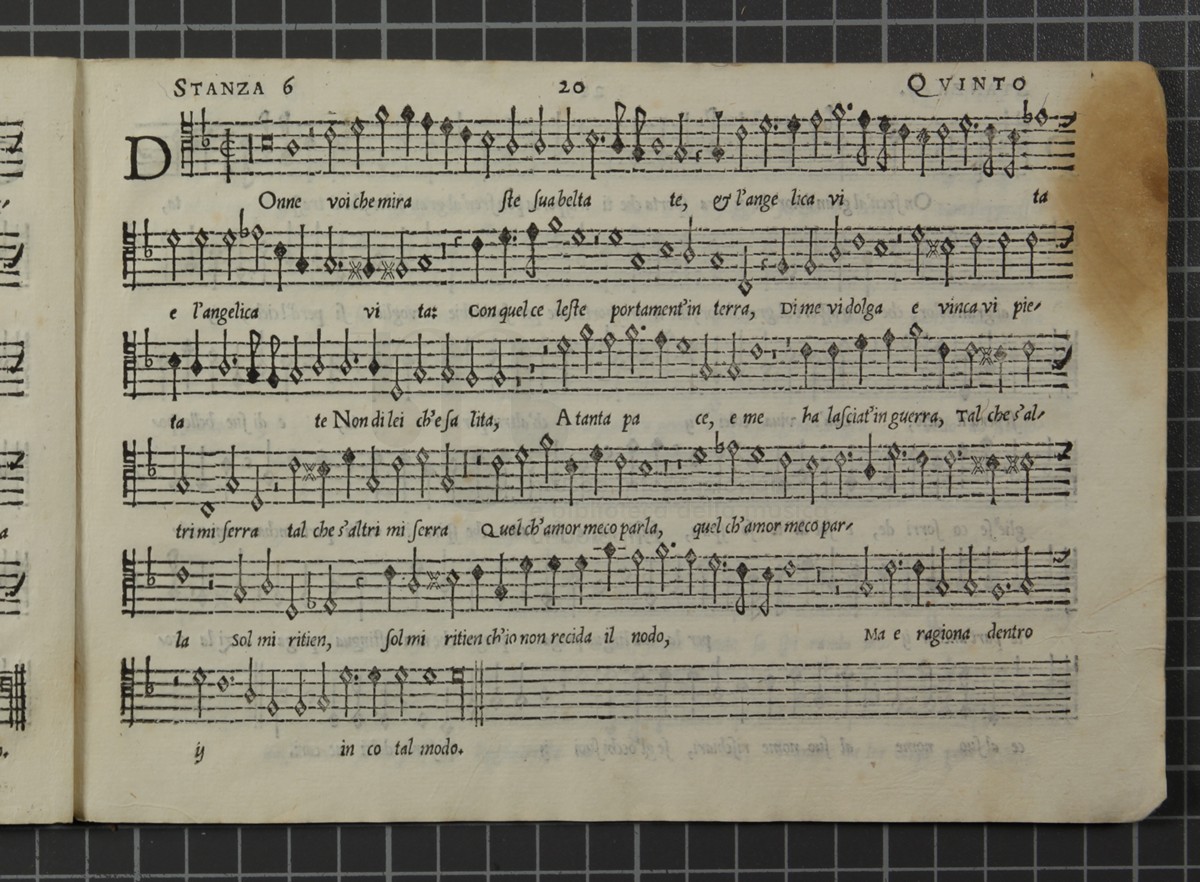 STANZA 6 20 QVINTO
DOnne voi che mira ste sua belta te, & l'ange lica vi ta
e l'angelica vi ta: Con quel ce leste portament'in terra, Di me vi dolga e vinca vi pie-
ta te Non di lei ch'e sa lita, A tanta pa ce, e me ha lasciat'in guerra, Tal che s'al-
tri mi serra tal che s'altri mi serra Quel ch'amor meco parla, quel ch'amor meco par-
la Sol mi ritien, sol mi ritien ch'io non recida il nodo, Ma e ragiona dentro
ij in co tal modo.